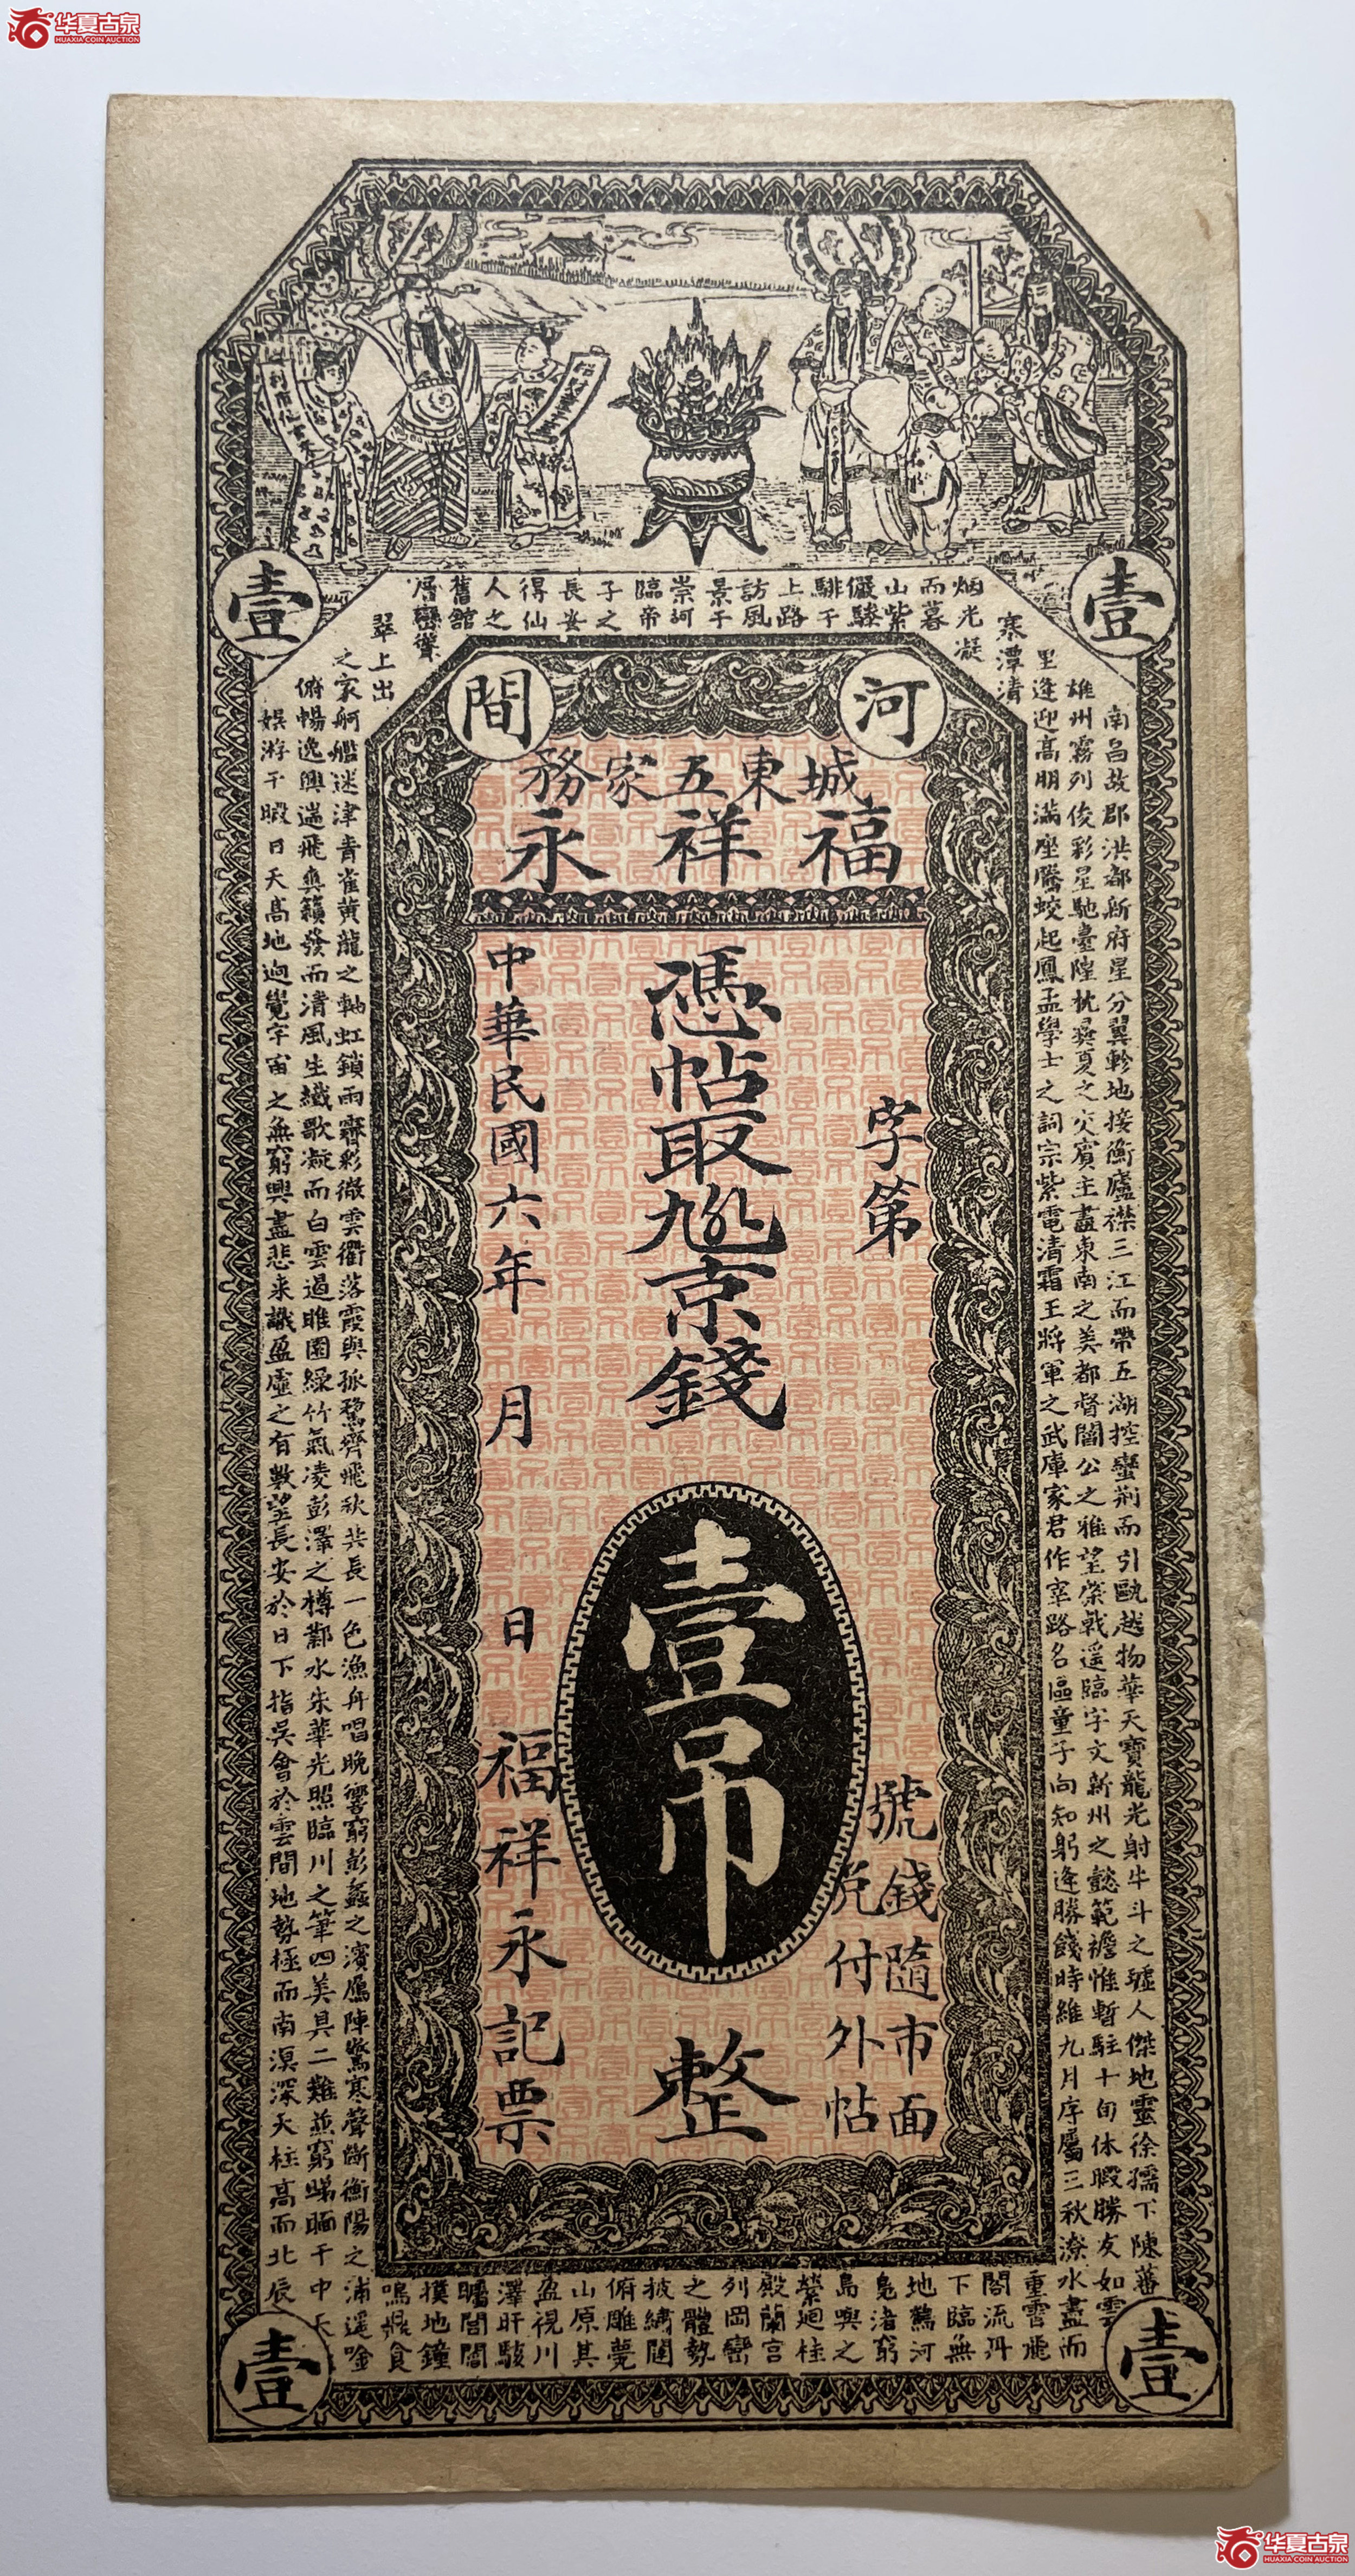 华夏古泉
HUAXIA COIN AUCTION
利市仙官
招財童子
壹
壹
河間
城東五家務
福祥永
字第
號錢隨市面
兌付外帖
憑帖取九八京錢
壹吊
整
中華民國六年 月 日 福祥永記票
南昌故郡洪都新府星分翼軫地接衡廬襟三江而帶五湖控蠻荊而引甌越物華天寶龍光射牛斗之墟人傑地靈徐孺下陳蕃
雄州霧列俊彩星馳臺隍枕夷夏之交賓主盡東南之美都督閻公之雅望棨戟遥臨宇文新州之懿範襜惟暫駐十旬休暇勝友如雲
里逢迎高朋滿座騰蛟起鳳孟學士之詞宗紫電清霜王將軍之武庫家君作宰路名區童子向知躬逢勝餞時維九月序屬三秋潦水盡而
寒潭清
烟光凝
而暮
山紫
儼驂
騑于
上路
訪風
景于
崇訶
臨帝
子之
長安
得仙
人之
舊館
層巒聳
翠上出
重霄飛
閣流丹
下臨無
地鶴河
鳧渚窮
島嶼之
縈迴桂
殿蘭宮
列岡巒
之體勢
披繡闥
俯雕甍
山原其
盈視川
澤盱駭
矚閭閻
撲地鐘
鳴鼎食
之家舸艦迷津青雀黄龍之軸虹銷雨霽彩徹雲衢落霞與孤鶩齊飛秋共長一色漁舟唱晚響窮彭蠡之濱鴈陣驚寒聲斷衡陽之浦遥唫
俯暢逸興遄飛爽籟發而清風生纖歌凝而白雲遏睢園綠竹氣凌彭澤之樽鄴水朱華光照臨川之筆四美具二難並窮睇眄于中天
娛游于暇日天高地迥覺宇宙之無窮興盡悲来識盈虛之有數望長安於日下指吳會於雲間地勢極而南溟深天柱高而北辰
壹
壹
华夏古泉
HUAXIA COIN AUCTION